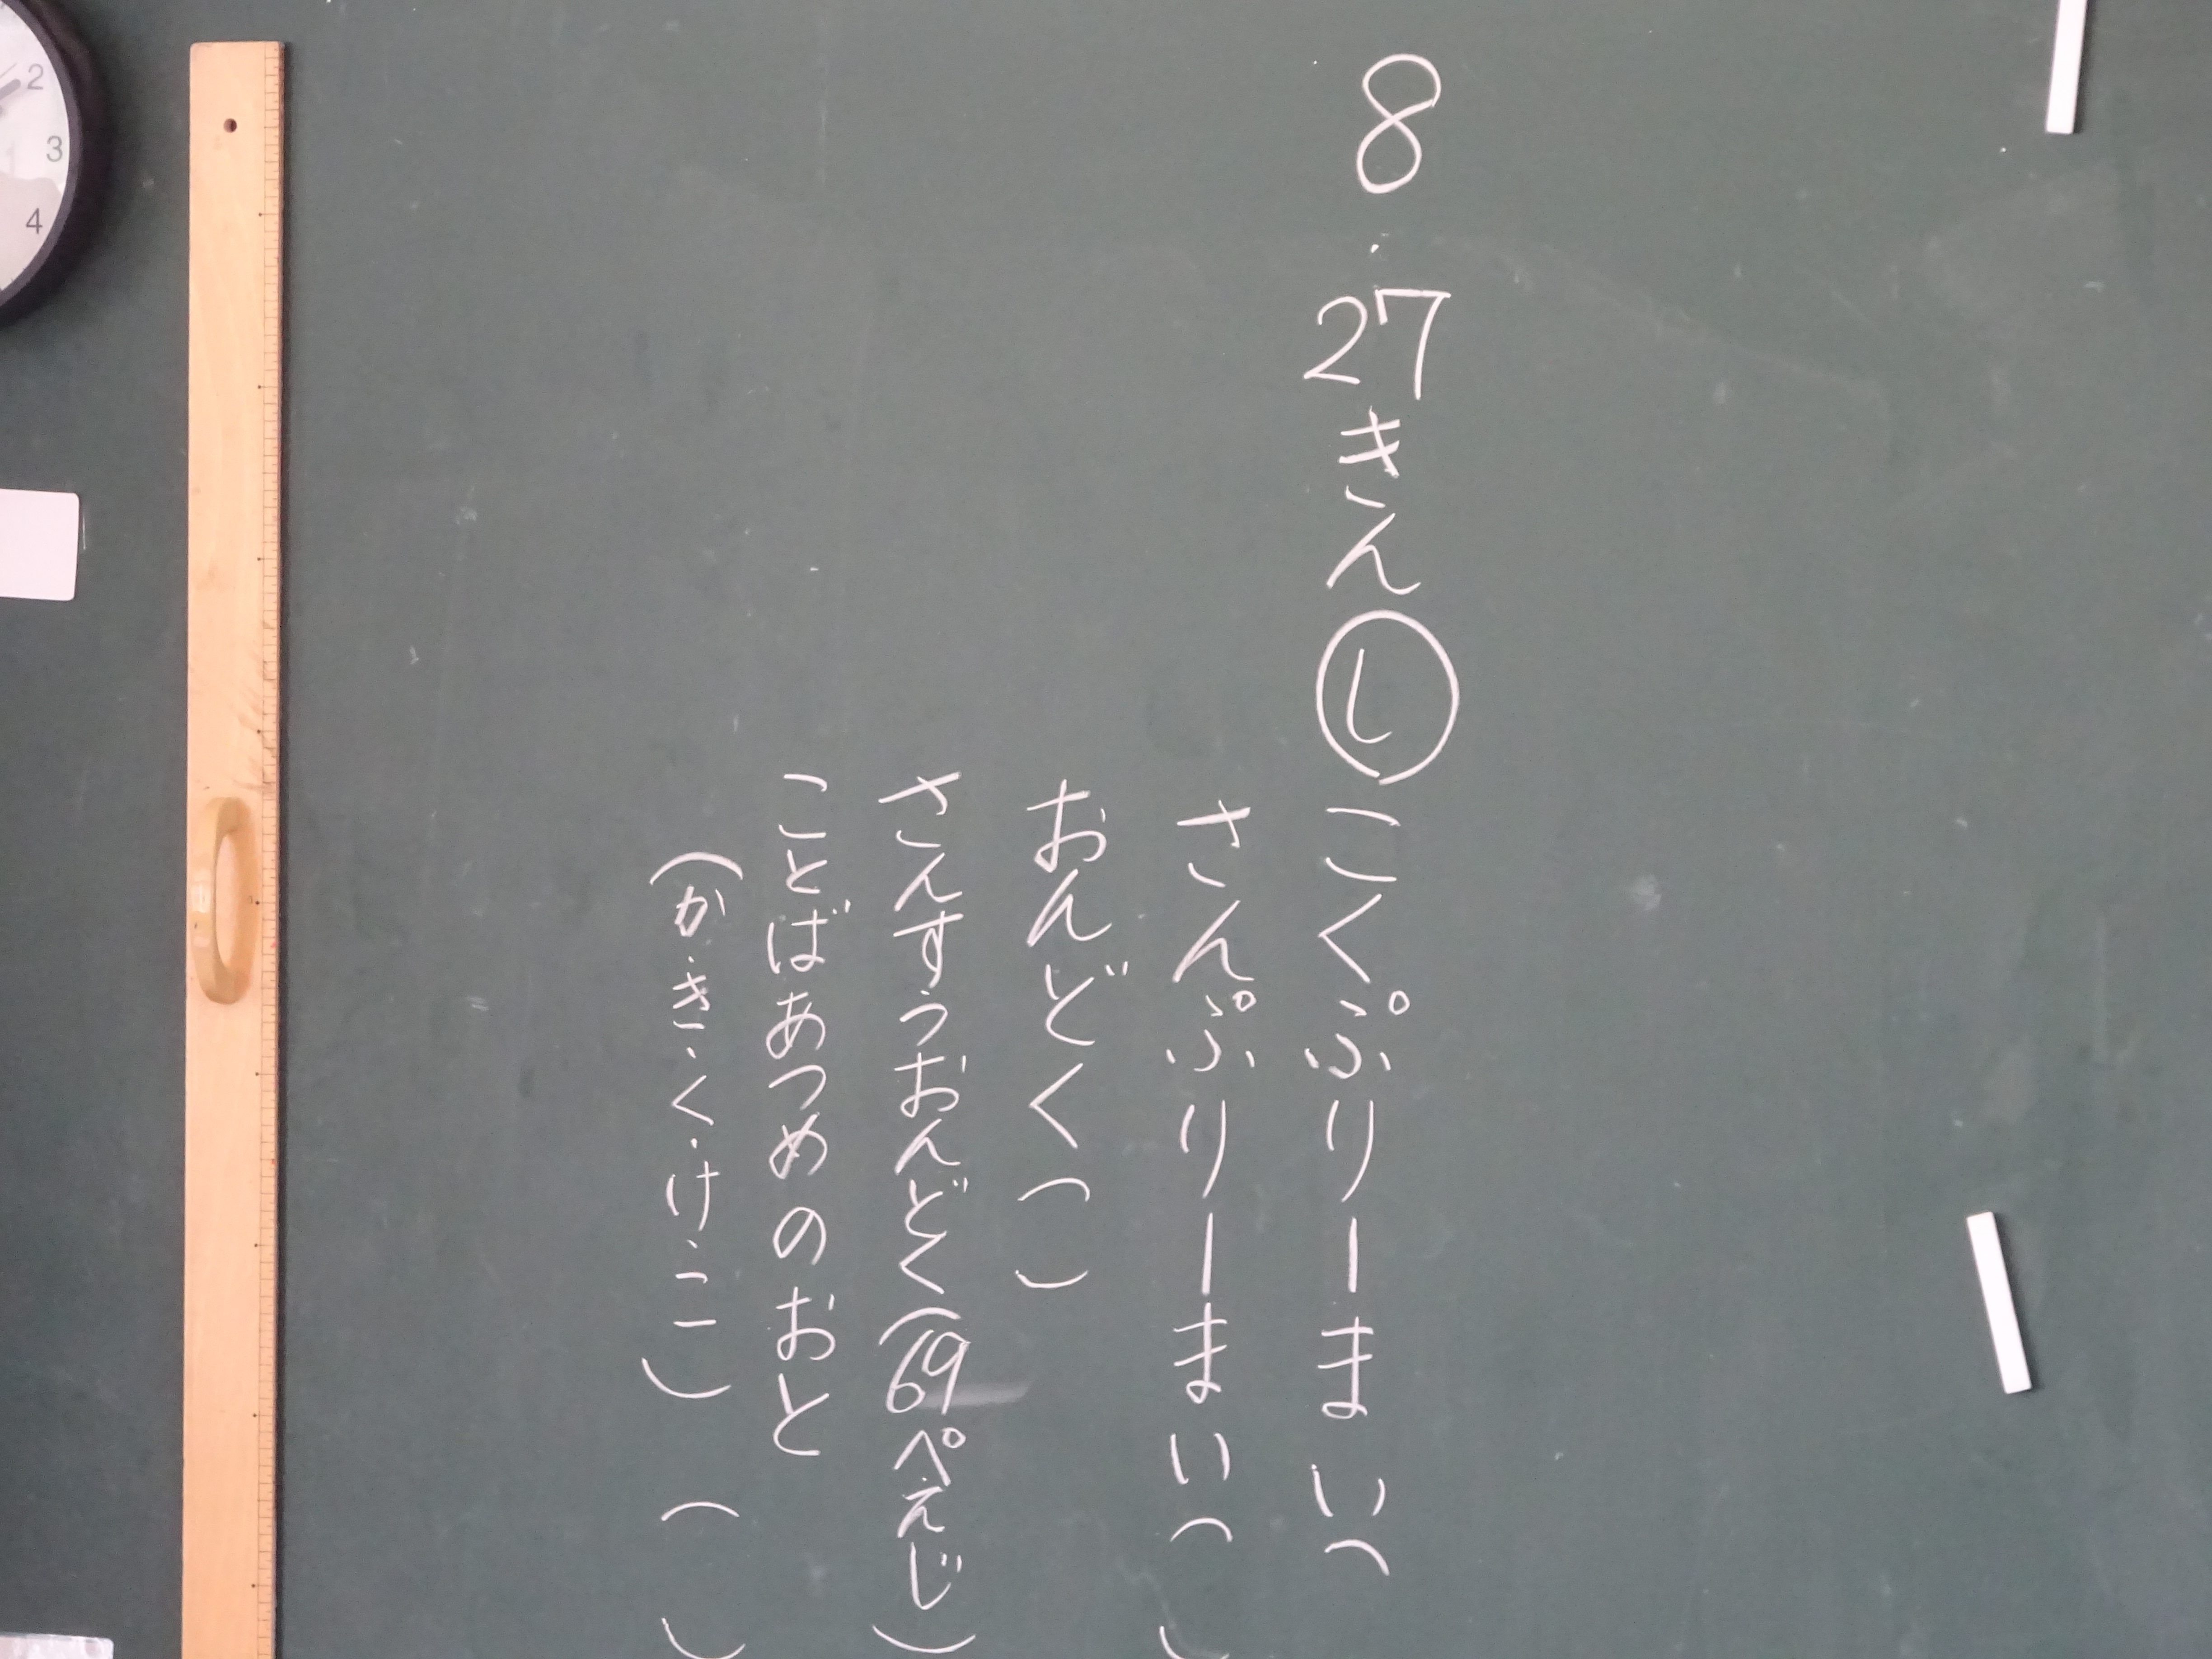 8・27きん㋛こくぷりーまい(
さんぷりーまい( )
おんどく( )
さんすうおんどく(69ぺえじ)
ことばあつめのおと
(か・き・く・け・こ) ( )
2
3
4